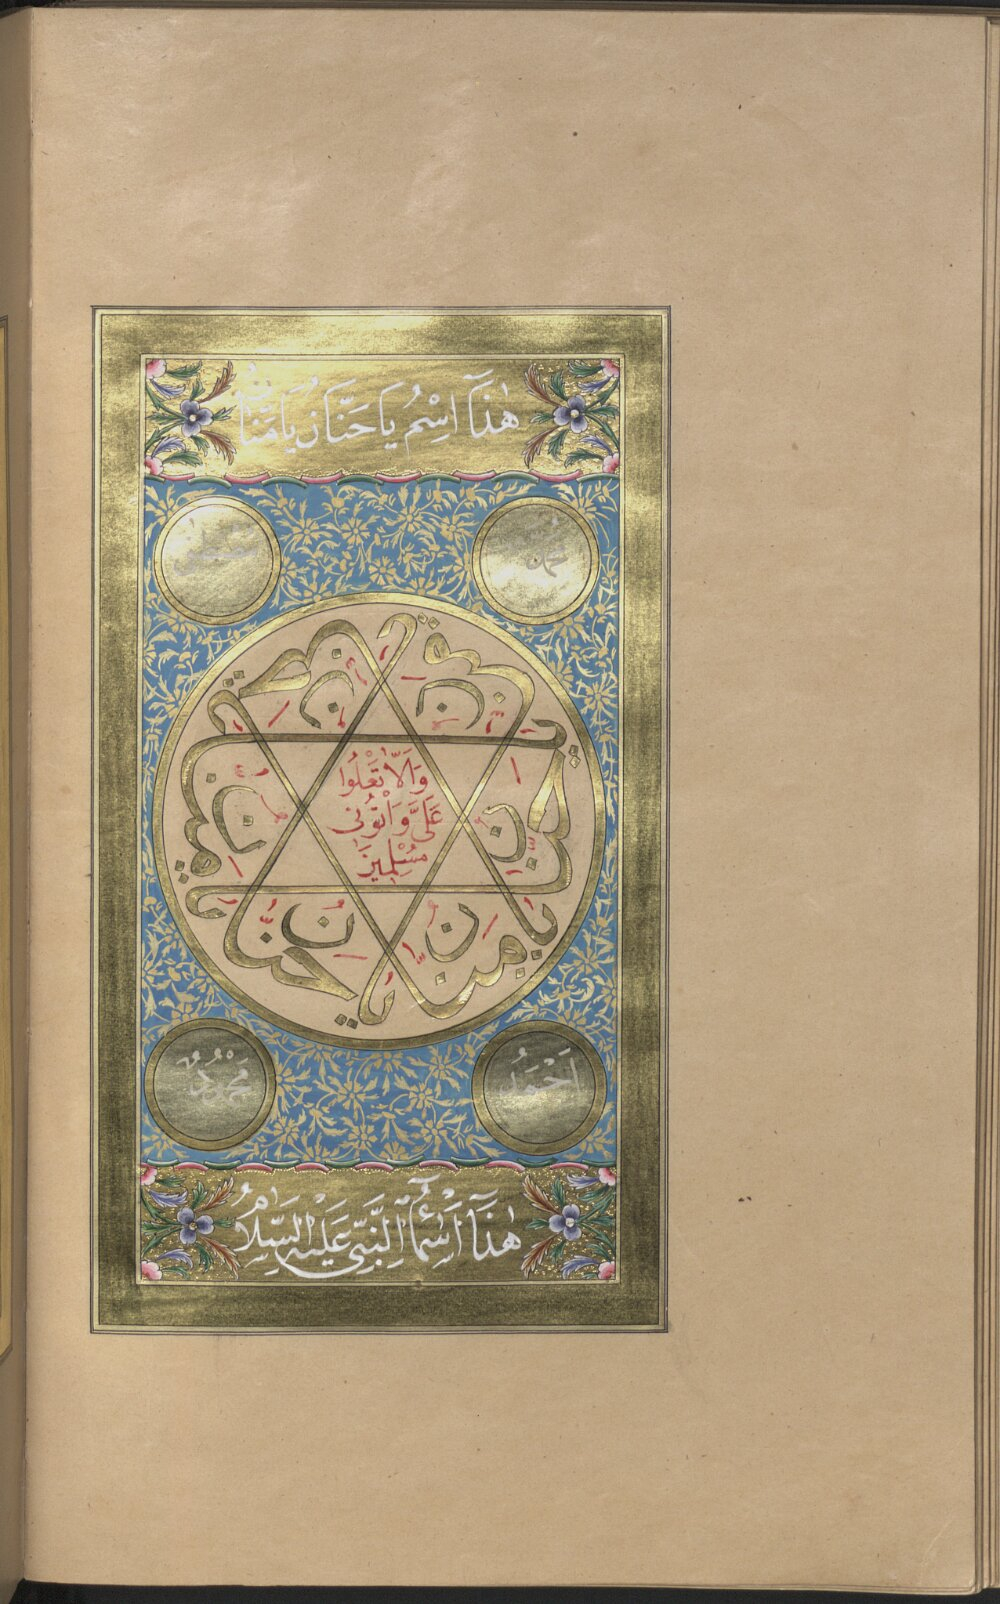 هٰذَا اِسْمُ يَا حَنَّانُ يَا مَنَّانُ
مُحَمَّدٌ
مصطفى
يا حنان يا منان
وَاَلَّا تَعْلُوا
عَلَىَّ وَاْتُونٖى
مُسْلِمٖينَ
اَحْمَدُ
مَحْمُودٌ
هٰذَا اَسْمَٓاءُ النَّبِىِّ عَلَيْهِ السَّلَامُ